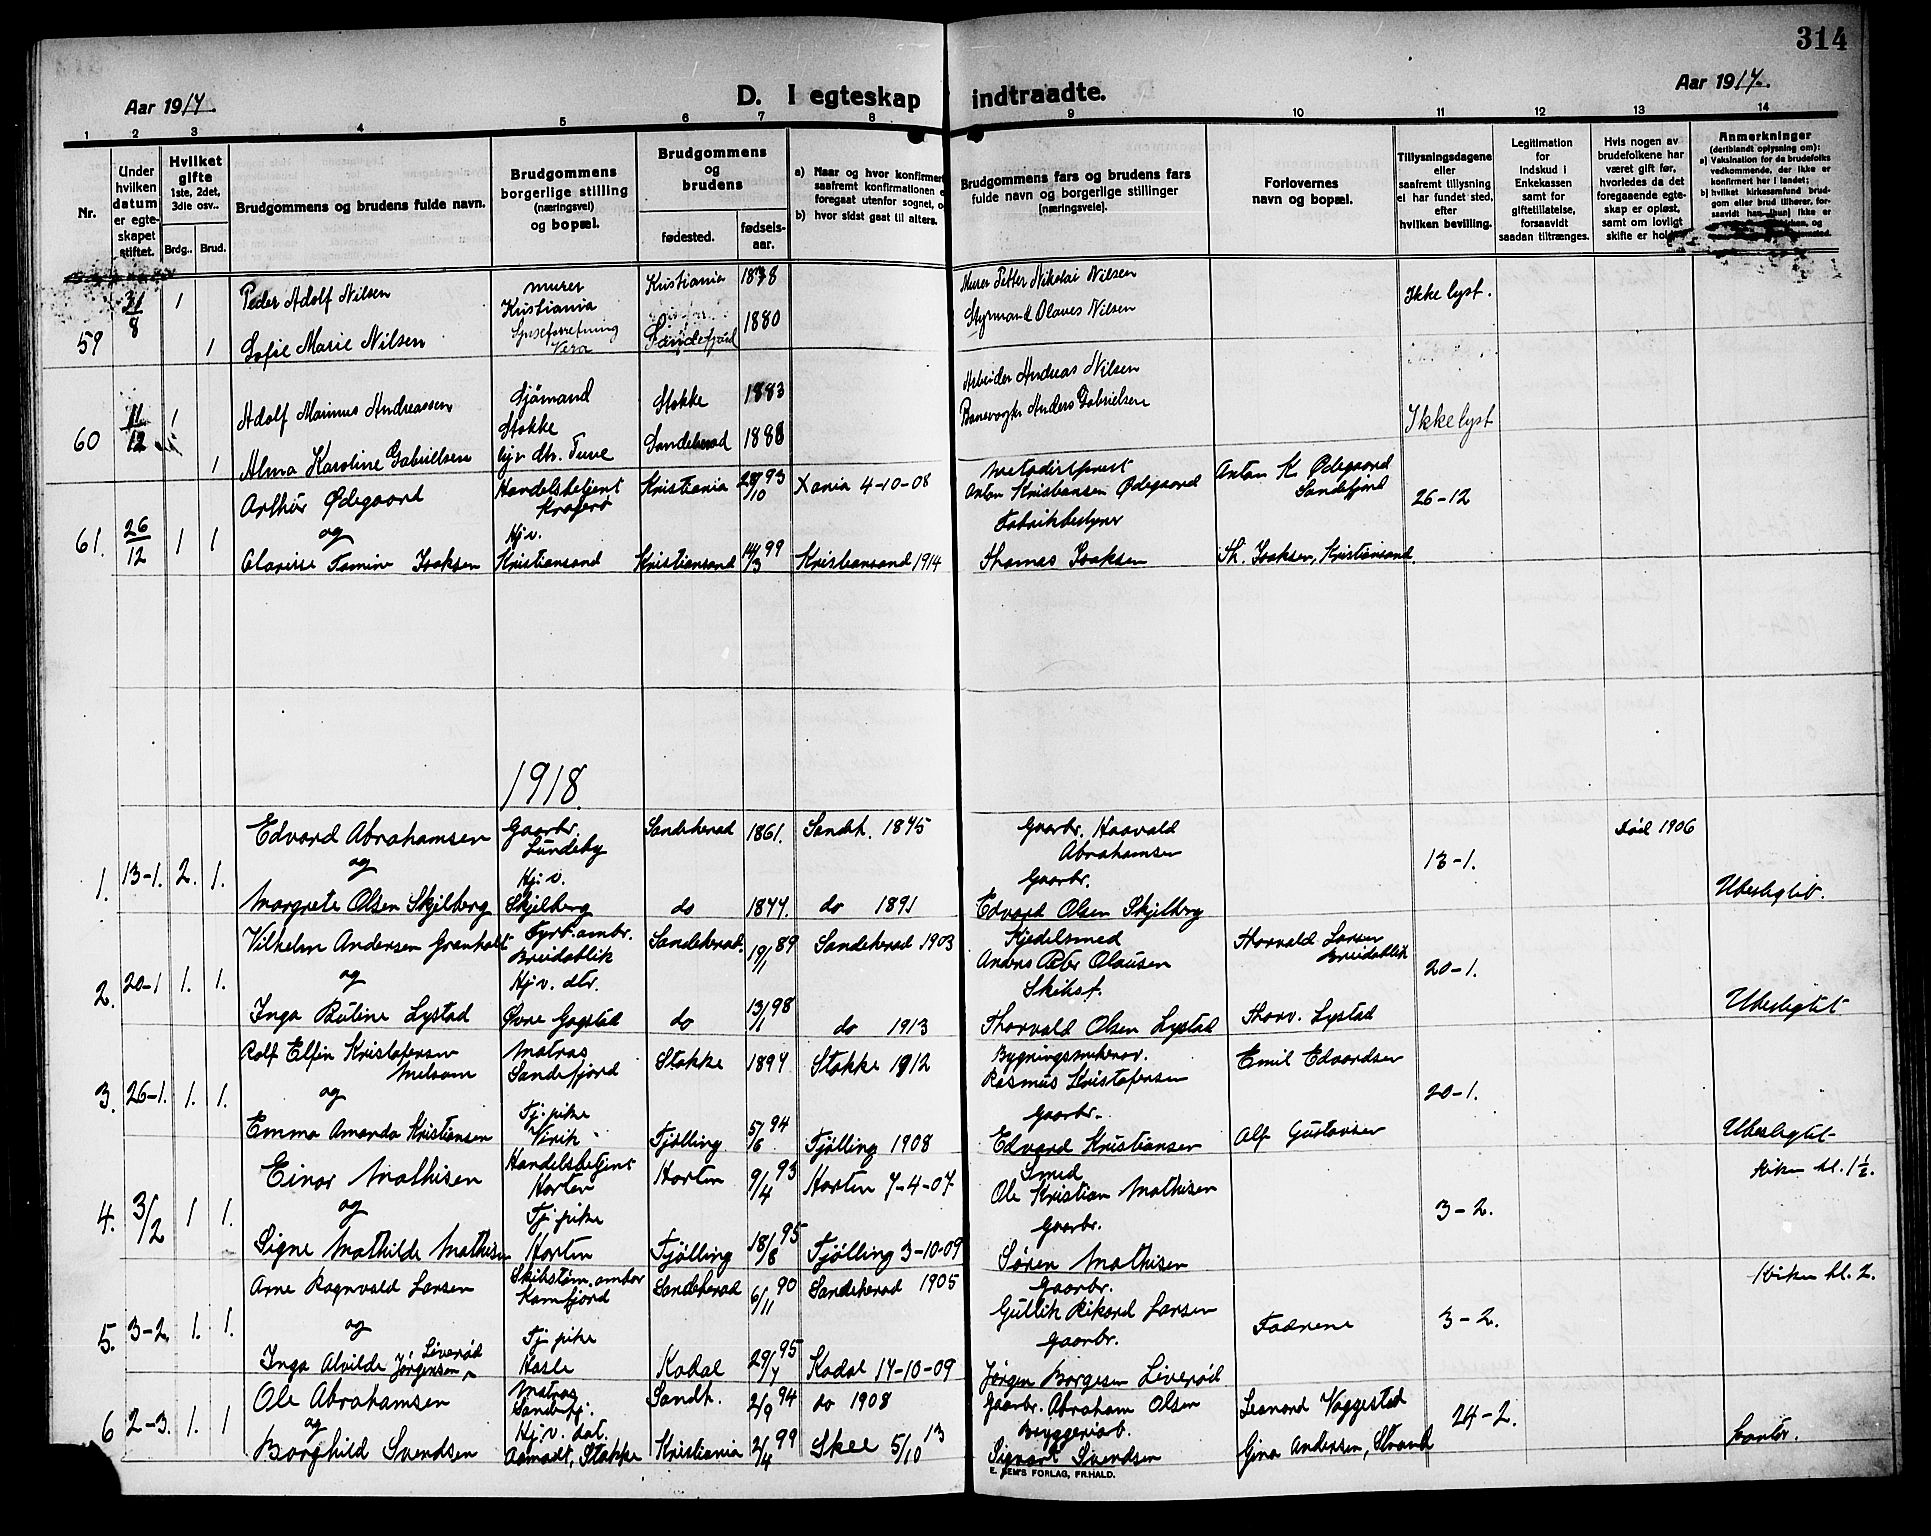 314
Aar 1917.
D. I egteskap indtraadte.
Aar 1917.
1 2 3 4 5 6 7 8 9 10 11 12 13 14
Nr.
Under hvilken datum er egteskapet stiftet.
Hvilket gifte 1ste, 2det, 3die osv..
Brdg.. Brud.
Brudgommens og brudens fulde navn.
Brudgommens borgerlige stilling (næringsvei) og bopæl.
Brudgommens og brudens
fødested. fødselsaar.
a) Naar og hvor konfirmert saafremt konfirmationen e foregaat utenfor sognet, o
b) hvor sidst gaat til alters.
Brudgommens fars og brudens fars fulde navn og borgerlige stillinger (næringsveie).
Forlovernes navn og bopæl.
Tillysningsdagene eller saafremt tillysning ei har fundet sted, efter hvilken bevilling.
Legitimation for Indskud i Enkekassen samt for giftetillatelse, forsaavidt saadan tiltrænges.
Hvis nogen av brudefolkene har været gift før, hvorledes da det foregaaende egteskap er opløst, samt om lovligt skifte er hold
Anmerkninger (deriblandt oplysning om):
a) Vaksination for de brudefolks vedkommende, der ikke er konfirmert her i landet;
b) hvilket kirkesamfund brudgom eller brud tilhører, forsaavidt han (hun) ikke er
59 31/8 1 Peder Adolf Nilsen murer Kristiania Kristiania 1878 Murer Petter Nikolai Nilsen Ikke lyst.
1 Sofie Marie Nilsen Spiseforretning Vera Sandefjord 1880 Styrmand Olaves Nilsen
60 11/12 1 Adolf Marinus Andreassen Sjømand Stokke Stokke 1883 Arbeider Andreas Nilsen Ikke lyst
1 Alma Karoline Gabrielsen hjv. dtr. Tuve Sandeherad 1888 Banevogter Anders Gabrielsen
61. 26/12 1 1 Arthur Ødegaard Handelsbetjent Kragerø Kristiania 28/10 93 Xania 4-10-08 Metodistprest Anton Kristiansen Ødegaard Anton K Ødegaard Sandefjord 26-12
og
Clarisse Famine Isaksen Hj.v. Kristiansand Kristiansand 14/3 99 Kristiansand 1914 Fabrikbestyrer Thomas Isaksen Th. Isaksen, Kristiansand.
1918.
1. 13-1. 2. 1. Edvard Abrahamsen Gaarbr. Lundeby Sandeherad 1861. Sandh. 1875 Gaarbr. Haavald Abrahamsen 13-1. død 1906
og
Margrete Olsen Skjelberg Hj.v. Skjelberg do 1877. do 1891 Gaarbr. Edvard Olsen Skjelberg Ubeslegtet.
2. 20-1 1. 1. Vilhelm Andersen Granholt Fyrb. ombr. Breidablik Sandeherad. 19/1 89 Sandeherad 1903 Kjedelsmed Anders Peter Olausen Thorvald Larsen Breidablik 20-1.
og
Inga Butine Lystad Hj.v. dtr. Øvre Gogstad do 13/1 98 do 1913 Skibsf. Thorvald Olsen Lystad Thorv. Lystad Ubeslegtet
3. 26-1. 1. 1. Rolf Elfin Kristofersen Melsom Matros Sandefjord Stokke 1897 Stokke 1912 Rasmus Kristofersen Emil Edvardsen 20-1.
og
Emma Amanda Kristiansen Tj. pike Virik Tjølling 5/6 94 Tjølling 1908 Gaarbr. Edvard Kristiansen Alf Gustavsen Ubeslegtet
4. 3/2 1 1. Einar Mathisen Handelsbetjent Horten Horten 9/4 93 Horten 7-4-07. Smed Ole Kristian Mathisen 3-2. kirken kl. 1½.
og
Signe Mathilde Mathisen Tj. pike Horten Tjølling 18/8 95 Tjølling 3-10-09 Gaarbr. Søren Mathisen
5. 3-2. 1. 1. Arne Ragnvald Larsen Skibstøm. ombr Kamfjord Sandeherad 6/11 90 Sandeherad 1905 Gaarbr. Gullik Rikard Larsen Fædrene 3-2. Kirken kl. 2.
og
Inga Alvilde Jørgensen Liverød Tj. pike Hasle Kodal 29/7 95 Kodal 17-10-09 Gaarbr. Jørgen Borgesen Liverød
6 2-3. 1. 1 Ole Abrahamsen Matros Sandefj. Sandh. 2/9 94 do 1908 Gaarbr. Abraham Olsen Leonard Vaggestad 24-2.
og
Borghild Svendsen Hj.v. dat. Aamodt, Stokke Kristiania 2/4 99 Skee 5/10 13 Bryggeriarb. Sigvart Svendsen Gina Andersen, Strand
E. SEM'S FORLAG, FR.HALD.